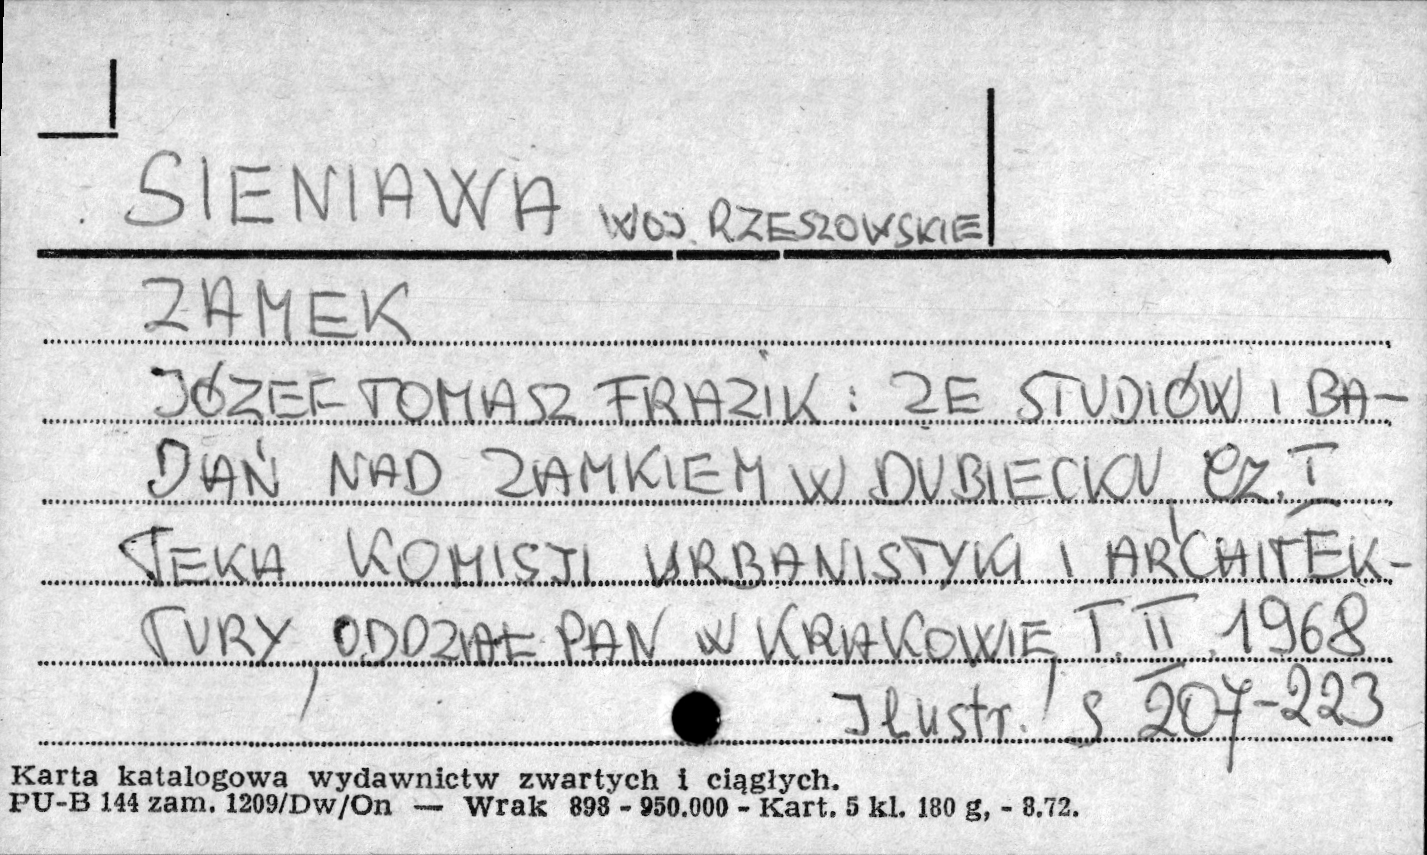 SIENIAWA WOJ. RZESZOWSKIE
ZAMEK
JÓZEF TOMASZ FRAZIK: ZE STUDIÓW I BA-
DAŃ NAD ZAMKIEM W DUBIECKU Cz. I
TEKA KOMISJI URBANISTYKI I ARCHITEK-
TURY, ODDZIAŁ PAN W KRAKOWIE, T. II, 1968
Ilustr. S 207-223
Karta katalogowa wydawnictw zwartych i ciągłych.
PU-B 144 zam. 1209/Dw/On — Wrak 898 - 950.000 - Kart. 5 kl. 180 g, - 8.72.